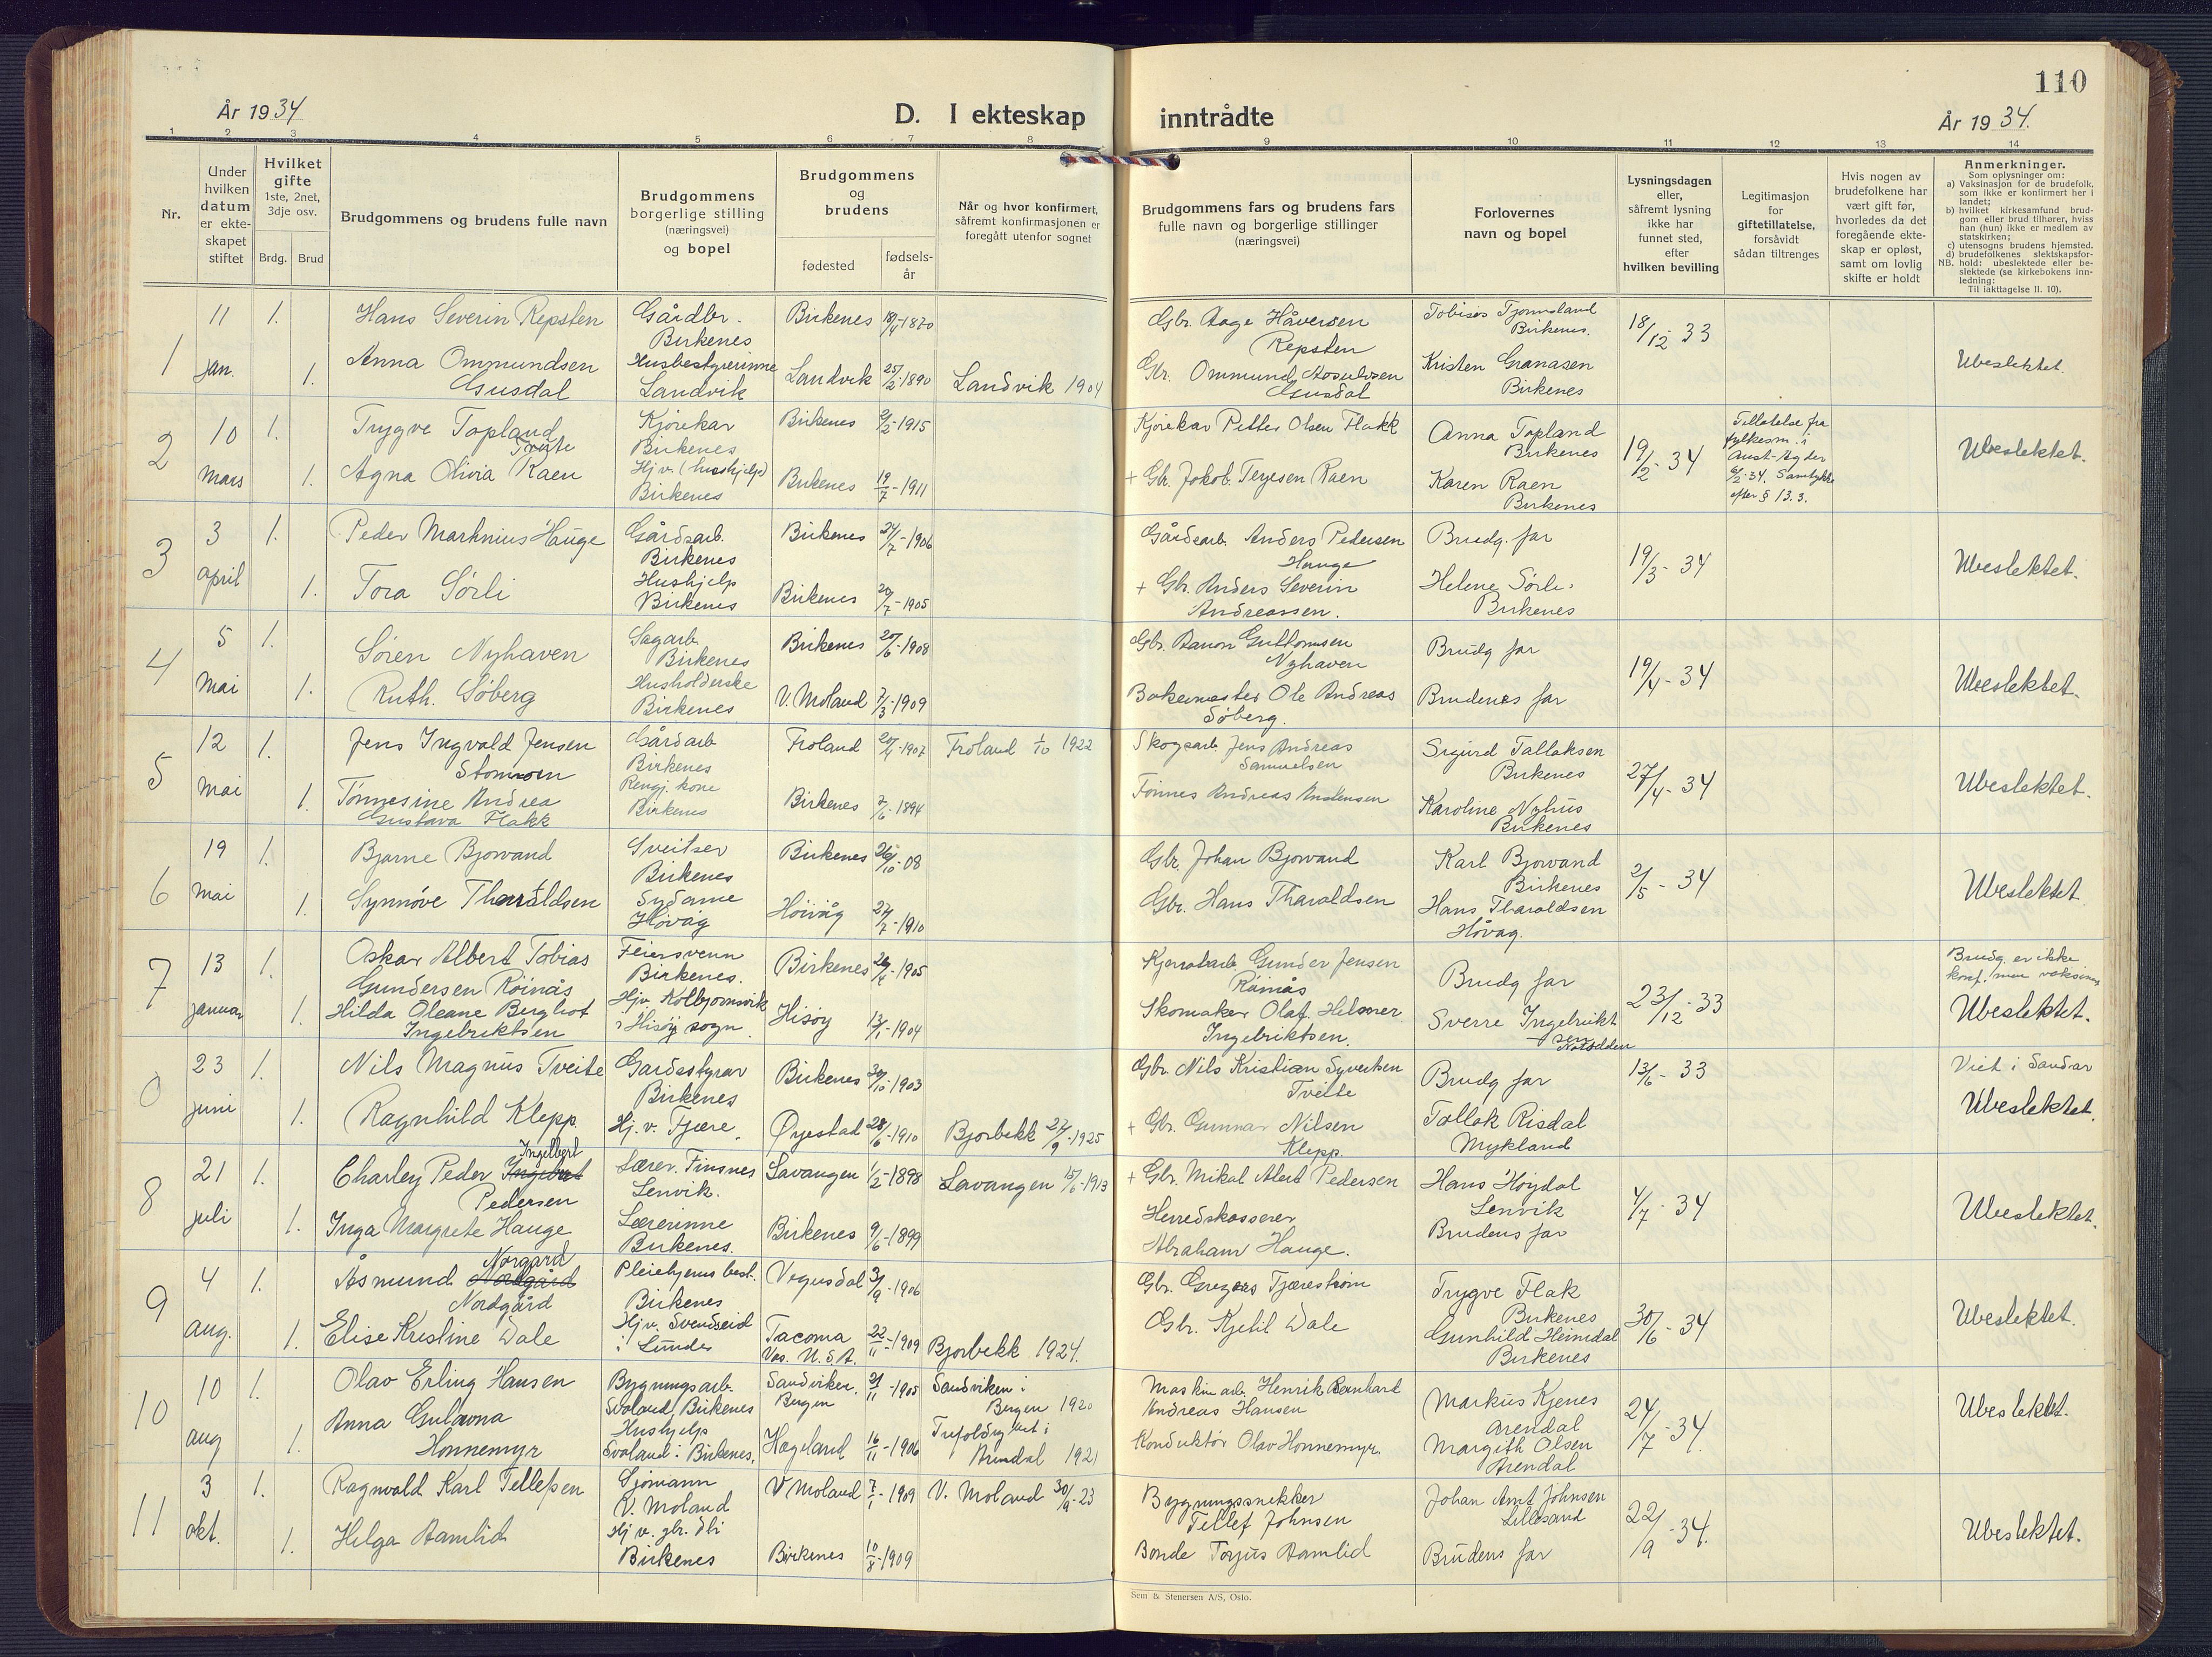 110
År 1934
D. I ekteskap inntrådte
År 1934.
1 2 3 4 5 6 7 8 9 10 11 12 13 14
Nr.
Under hvilken datum er ekte- skapet stiftet
Hvilket gifte 1ste, 2net, 3dje osv.
Brdg. Brud
Brudgommens og brudens fulle navn
Brudgommens borgerlige stilling (næringsvei) og bopel
Brudgommens og brudens
fødested
fødsels- år
Når og hvor konfirmert, såfremt konfirmasjonen er foregått utenfor sognet
Brudgommens fars og brudens fars fulle navn og borgerlige stillinger (næringsvei)
Forlovernes navn og bopel
Lysningsdagen eller, såfremt lysning ikke har funnet sted, efter hvilken bevilling
Legitimasjon for giftetillatelse, forsåvidt sådan tiltrenges
Hvis nogen av brudefolkene har vært gift før, hvorledes da det foregående ekte- skap er opløst, samt om lovlig skifte er holdt
Anmerkninger.
Som oplysninger om:
a) Vaksinasjon for de brudefolk, som ikke er konfirmert her i landet;
b) hvilket kirkesamfund brud- gom eller brud tilhører, hviss han (hun) ikke er medlem av statskirken;
c) utensogns brudens hjemsted.
d) brudefolkenes slektskapsfor-
NB. hold: ubeslektede eller be- slektede (se kirkebokens inn- ledning:
Til iakttagelse II. 10).
1 11 jan. 1. Hans Severin Repsten Gårdbr. Birkenes Birkenes 18/4-1870 Gbr. Aage Håversen Repsten Tobias Tjomsland Birkenes. 18/12 33
1. Anna Ommundsen Gusdal Husbestyrerinne Landvik Landvik 25/2-1890 Landvik 1904 Gbr. Ommund Aosulvsen Gusdal Kristen Granasen Birkenes Ubeslektet.
2 10 mars 1. Trygve Topland Kjørekar Birkenes Birkenes 2/2-1915 Kjørekar Petter Olsen Flakk Anna Topland Birkenes 19/2-34 Tillatelse fra fylkesm. i Aust-Agder 6/2-34. Samtykke efter § 13.3. Ubeslektet.
1. Agna Olivia Tveite Raen Hj v. (hushjelp) Birkenes Birkenes 19/7-1911 + Gbr. Jakob Terjesen Raen Karen Raen Birkenes
3 3 april 1. Peder Marknius Hauge Gårdsarb. Birkenes Birkenes 24/7-1906 Gårdsarb. Anders Pedersen Hauge Brudg. far 19/3-34 Ubeslektet.
1. Tora Sørli Hushjelp Birkenes Birkenes 20/7-1905 + Gbr. Anders Severin Andreassen. Helene Sørli Birkenes
4 5 mai 1. Søren Nyhaven Sagarb. Birkenes Birkenes 20/6-1908 Gbr. Aanon Guttormsen Nyhaven Brudg far 19/4-34 Ubeslektet.
1. Ruth. Søberg Husholderske Birkenes V. Moland 7/3-1909 Bakermester Ole Andreas Søberg. Brudenes far
5 12 mai 1. Jens Ingvald Jensen Stomroen Gårdarb Birkenes Froland 20/4-1907 Froland 1/10 1922 Skogsarb. Jens Andreas Samuelsen Sigurd Tallaksen Birkenes 27/4-34 Ubeslektet.
1. Tønnesine Andrea Gustava Flakk Rengj. kone Birkenes Birkenes 7/6-1894 Tønnes Andreas Anstensen Karoline Nyhus Birkenes
6 19 mai 1. Bjarne Bjorvand Sveitser Birkenes Birkenes 26/10-08 Gbr. Johan Bjorvand Karl Bjorvand Birkenes 2/5-34 Ubeslektet
1. Synnøve Tharaldsen Sydame Høvåg Høivåg 27/7-1910 Gbr. Hans Tharaldsen Hans Tharaldsen Høvag.
7 13 januar 1. Oskar Albert Tobias Gundersen Røinås Feiersvenn Birkenes. Birkenes 1905 Gunder Jensen Røinås Brudg far 23/12-33 Brudg. er ikke konf. men vaksinert
1. Hilda Oleane Berghot Ingebriktsen Hjv. Kolbjornsvik i Hisøy sogn Hisøy 13/1-1904 Skomaker Olaf Hilmer Ingebriktsen. Sverre Ingebrikt sen Notodden Ubeslektet.
0 23 juni 1. Nils Magnus Tveite Gardsstyrar Birkenes Birkenes 30/10-1903 Gbr. Nils Kristian Syvertsen Tveite Brudg far 13/6-33 Viet i Sandar
1. Ragnhild Klepp. Hj. v. Fjære. Øyestad 28/6-1910 Bjorbekk 27/9-1925 + Gbr. Gunnar Nilsen Klepp. Tallak Risdal Mykland Ubeslektet.
8 21 juli 1. Charley Peder Ingebret Ingelbert Pedersen Lærer. Finsnes Lenvik. Lavangen 1/2-1898 Lavangen 15/6-1913 + Gbr. Mikal Alert Pedersen Hans Høydal Lenvik 4/7-34 Ubeslektet.
1. Inga Margrete Hauge Lærerinne Birkenes. Birkenes 9/6-1899 Herredskasserer Abraham Hauge. Brudens far
9 4 aug. 1. Åsmund Nordgård Norgard Nordgård Pleiehjems best. Birkenes Vegusdal 3/9-1906 Gbr. Gregers Fjærestrøm Trygve Flak Birkenes 30/6-34 Ubeslektet.
1. Elise Kristine Dale Hj v. Svendseid i Lunde Tacoma Vas. U.S.A. 22/11-1909 Bjorbekk 1924. Gbr. Kjetil Dale Gunhild Heimdal Birkenes
10 10 aug 1. Olav Erling Hansen Bygningsarb. Svaland, Birkenes Sandviken, Bergen 21/11-1905 Sandviken i Bergen 1920 Maskinarb. Henrik Bernhard Andreas Hansen Markus Kjenes Arendal 24/7-34. Ubeslektet.
1. Anna Gulovna Honnemyr Hushjelp Svaland i Birkenes. Hægeland 16/11-1906 Trefoldighet i Arendal 1921 Konduktør Olav Honnemyr. Margith Olsen Arendal
11 3 okt. 1. Ragnvald Karl Tellefsen Sjømann V. Moland V Moland 7/1-1909 V. Moland 30/9-23 Bygningssnikker Tellef Johnsen Johan Arnt Johnsen Lillesand 22/9-34. Ubeslektet.
1. Helga Aamlid Hj v. gbr. Birkenes Birkenes 10/8-1909 Bonde Torjus Aamlid Brudens far
Sem & Stenersen A/S, Oslo.